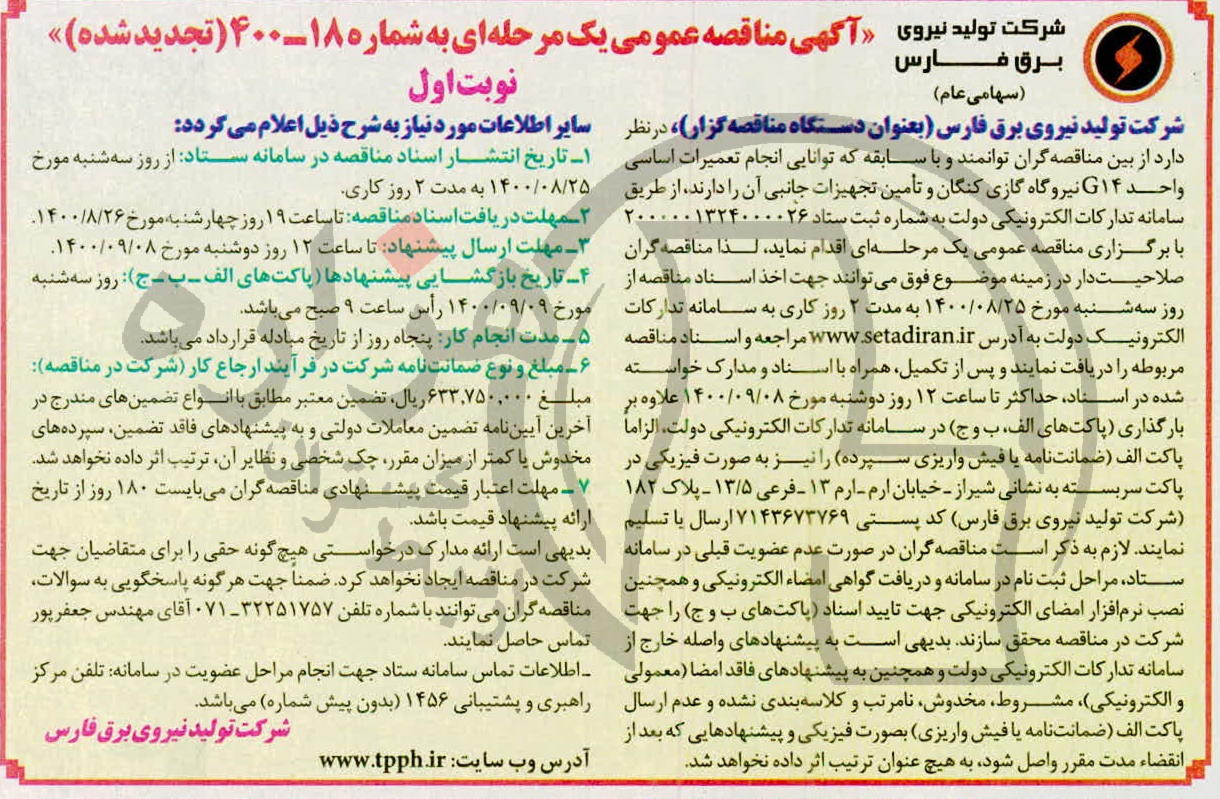 شرکت تولید نیروی
برق فارس
(سهامی عام)
«آگهی مناقصه عمومی یک مرحله‌ای به شماره ۱۸ـ۴۰۰ (تجدید شده)»
نوبت اول
شرکت تولید نیروی برق فارس (بعنوان دستگاه مناقصه گزار)، در نظر
دارد از بین مناقصه گران توانمند و با سابقه که توانایی انجام تعمیرات اساسی
واحد G۱۴ نیروگاه گازی کنگان و تأمین تجهیزات جانبی آن را دارند، از طریق
سامانه تدارکات الکترونیکی دولت به شماره ثبت ستاد ۲۰۰۰۰۰۱۳۲۴۰۰۰۰۲۶
با برگزاری مناقصه عمومی یک مرحله‌ای اقدام نماید، لذا مناقصه گران
صلاحیت‌دار در زمینه موضوع فوق می‌توانند جهت اخذ اسناد مناقصه از
روز سه‌شنبه مورخ ۱۴۰۰/۰۸/۲۵ به مدت ۲ روز کاری به سامانه تدارکات
الکترونیک دولت به آدرس www.setadiran.ir مراجعه و اسناد مناقصه
مربوطه را دریافت نمایند و پس از تکمیل، همراه با اسناد و مدارک خواسته
شده در اسناد، حداکثر تا ساعت ۱۲ روز دوشنبه مورخ ۱۴۰۰/۰۹/۰۸ علاوه بر
بارگذاری (پاکت‌های الف، ب و ج) در سامانه تدارکات الکترونیکی دولت، الزاماً
پاکت الف (ضمانت‌نامه یا فیش واریزی سپرده) را نیز به صورت فیزیکی در
پاکت سربسته به نشانی شیراز ـ خیابان ارم ـ ارم ۱۳ ـ فرعی ۱۳/۵ ـ پلاک ۱۸۲
(شرکت تولید نیروی برق فارس) کد پستی ۷۱۴۳۶۷۳۷۶۹ ارسال یا تسلیم
نمایند. لازم به ذکر است مناقصه‌گران در صورت عدم عضویت قبلی در سامانه
ستاد، مراحل ثبت نام در سامانه و دریافت گواهی امضاء الکترونیکی و همچنین
نصب نرم‌افزار امضای الکترونیکی جهت تایید اسناد (پاکت‌های ب و ج) را جهت
شرکت در مناقصه محقق سازند. بدیهی است به پیشنهادهای واصله خارج از
سامانه تدارکات الکترونیکی دولت و همچنین به پیشنهادهای فاقد امضا (معمولی
و الکترونیکی)، مشروط، مخدوش، نامرتب و کلاسه‌بندی نشده و عدم ارسال
پاکت الف (ضمانت‌نامه یا فیش واریزی) بصورت فیزیکی و پیشنهادهایی که بعد از
انقضاء مدت مقرر واصل شود، به هیچ عنوان ترتیب اثر داده نخواهد شد.
سایر اطلاعات مورد نیاز به شرح ذیل اعلام می گردد:
۱ـ تاریخ انتشار اسناد مناقصه در سامانه ستاد: از روز سه‌شنبه مورخ
۱۴۰۰/۰۸/۲۵ به مدت ۲ روز کاری.
۲ـ مهلت دریافت اسناد مناقصه: تا ساعت ۱۹ روز چهارشنبه مورخ ۱۴۰۰/۸/۲۶.
۳ـ مهلت ارسال پیشنهاد: تا ساعت ۱۲ روز دوشنبه مورخ ۱۴۰۰/۰۹/۰۸.
۴ـ تاریخ بازگشایی پیشنهادها (پاکت‌های الف ـ ب ـ ج): روز سه‌شنبه
مورخ ۱۴۰۰/۰۹/۰۹ رأس ساعت ۹ صبح می‌باشد.
۵ ـ مدت انجام کار: پنجاه روز از تاریخ مبادله قرارداد می‌باشد.
۶ ـ مبلغ و نوع ضمانت‌نامه شرکت در فرآیند ارجاع کار (شرکت در مناقصه):
مبلغ ۶۳۳,۷۵۰,۰۰۰ ریال، تضمین معتبر مطابق با انواع تضمین‌های مندرج در
آخرین آیین‌نامه تضمین معاملات دولتی و به پیشنهادهای فاقد تضمین، سپرده‌های
مخدوش یا کمتر از میزان مقرر، چک شخصی و نظایر آن، ترتیب اثر داده نخواهد شد.
۷ ـ مهلت اعتبار قیمت پیشنهادی مناقصه‌گران می‌بایست ۱۸۰ روز از تاریخ
ارائه پیشنهاد قیمت باشد.
بدیهی است ارائه مدارک درخواستی هیچ‌گونه حقی را برای متقاضیان جهت
شرکت در مناقصه ایجاد نخواهد کرد. ضمناً جهت هرگونه پاسخگویی به سوالات،
مناقصه‌گران می‌توانند با شماره تلفن ۳۲۲۵۱۷۵۷ـ۰۷۱ آقای مهندس جعفرپور
تماس حاصل نمایند.
ـ اطلاعات تماس سامانه ستاد جهت انجام مراحل عضویت در سامانه: تلفن مرکز
راهبری و پشتیبانی ۱۴۵۶ (بدون پیش شماره) می‌باشد.
شرکت تولید نیروی برق فارس
آدرس وب سایت: www.tpph.ir
هزاره